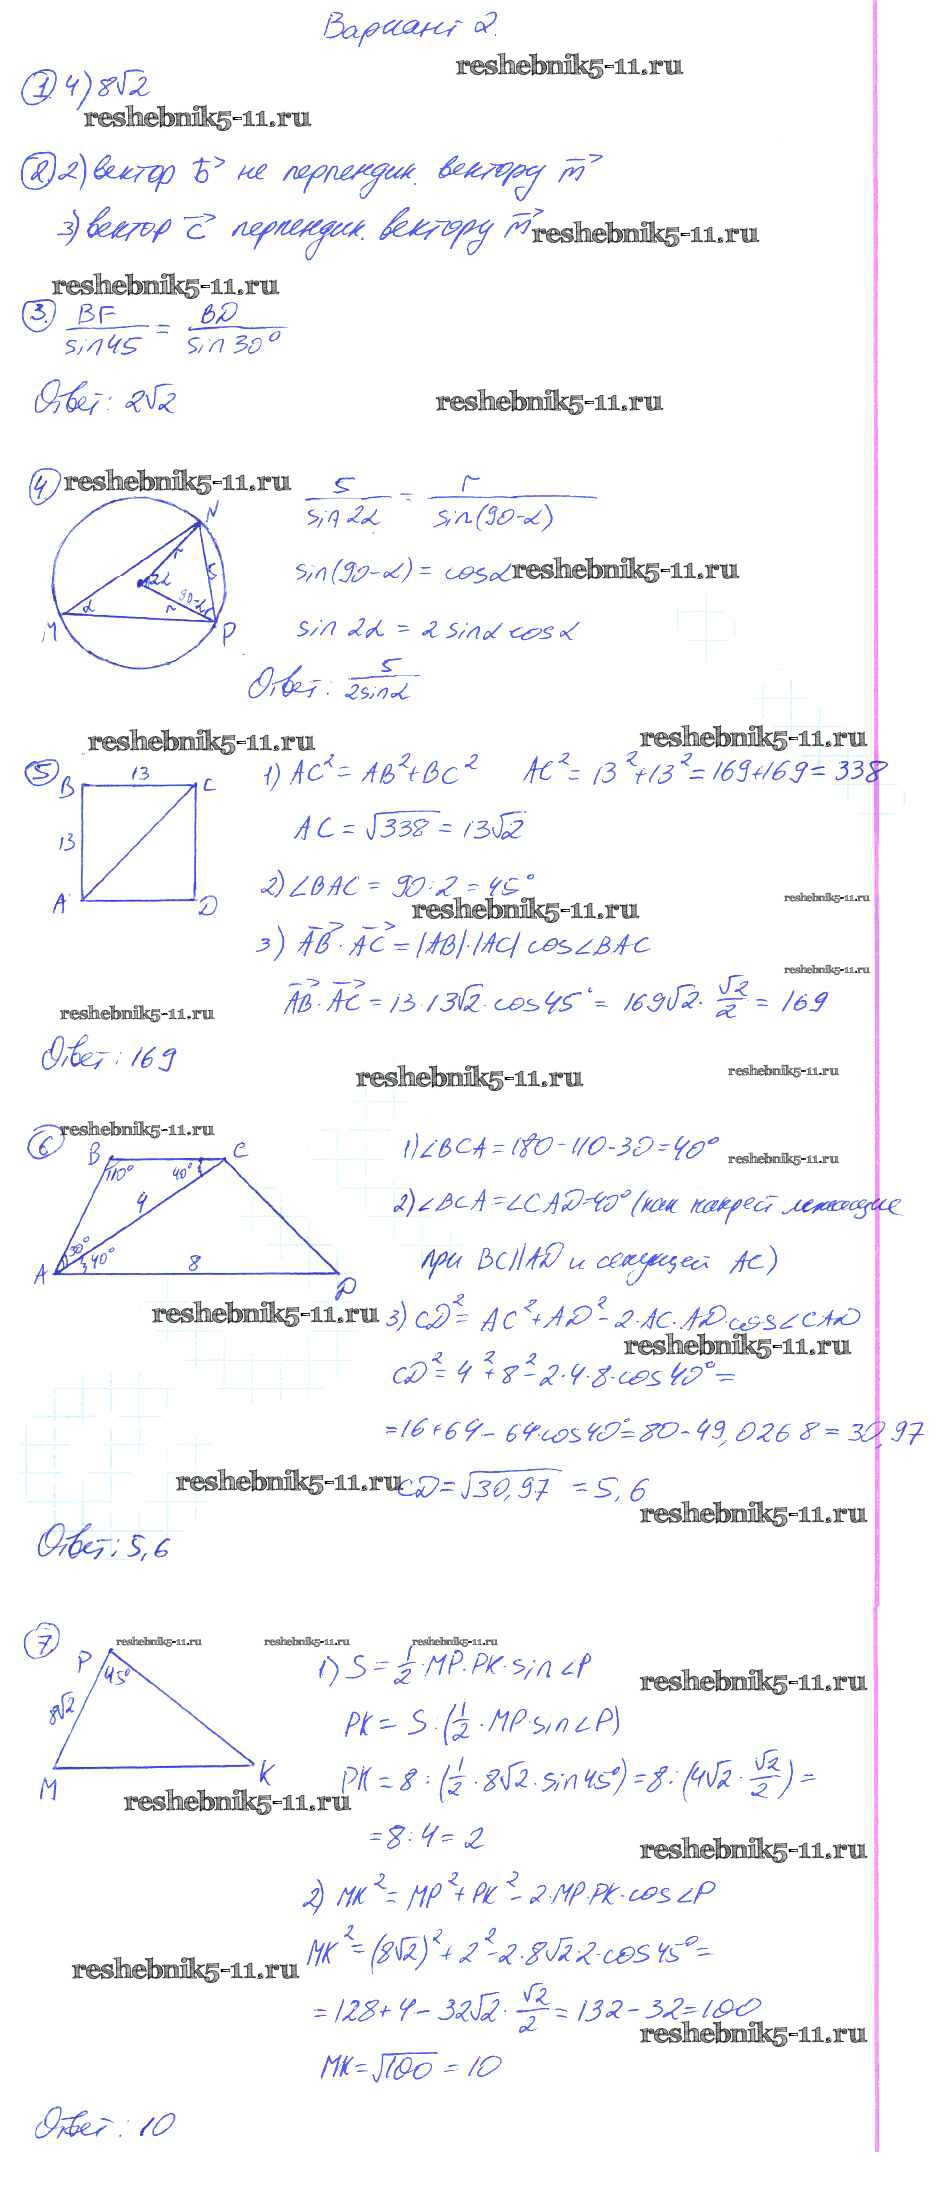 Вариант 2.
reshebnik5-11.ru
1. 4) 8√2
reshebnik5-11.ru
2. 2) вектор b⃗ не перпендик. вектору m⃗
3) вектор c⃗ перпендик. вектору m⃗
reshebnik5-11.ru
reshebnik5-11.ru
3. BF/sin45 = BD/sin30°
Ответ: 2√2
reshebnik5-11.ru
4 reshebnik5-11.ru
5/sin2α = r/sin(90-α)
N
r
5
2α
90-α
r
M
α
P
sin(90-α) = cosα
reshebnik5-11.ru
sin2α = 2sinα cosα
Ответ: 5/2sinα
reshebnik5-11.ru
reshebnik5-11.ru
5 1) AC² = AB² + BC² AC² = 13² + 13² = 169 + 169 = 338
B 13 C
13
A D
AC = √338 = 13√2
2) ∠BAC = 90:2 = 45°
reshebnik5-11.ru
reshebnik5-11.ru
3) AB⃗·AC⃗ = |AB|·|AC| cos∠BAC
reshebnik5-11.ru
AB⃗·AC⃗ = 13·13√2·cos45° = 169√2·√2/2 = 169
reshebnik5-11.ru
Ответ: 169
reshebnik5-11.ru
reshebnik5-11.ru
6 reshebnik5-11.ru
1) ∠BCA = 180-110-30 = 40°
reshebnik5-11.ru
B C
110° 40°
4
30°
40°
A 8 D
2) ∠BCA = ∠CAD = 40° (как накрест лежащие
при BC||AD и секущей AC)
reshebnik5-11.ru
3) CD² = AC² + AD² - 2·AC·AD·cos∠CAD
reshebnik5-11.ru
CD² = 4² + 8² - 2·4·8·cos40° =
= 16 + 64 - 64·cos40° = 80 - 49,0268 = 30,97
reshebnik5-11.ru
CD = √30,97 = 5,6
reshebnik5-11.ru
Ответ: 5,6
7 reshebnik5-11.ru reshebnik5-11.ru reshebnik5-11.ru
P
45°
8√2
M K
1) S = 1/2·MP·PK·sin∠P
reshebnik5-11.ru
PK = S:(1/2·MP·sin∠P)
PK = 8:(1/2·8√2·sin45°) = 8:(4√2·√2/2) =
reshebnik5-11.ru
= 8:4 = 2
reshebnik5-11.ru
2) MK² = MP² + PK² - 2·MP·PK·cos∠P
MK² = (8√2)² + 2² - 2·8√2·2·cos45° =
reshebnik5-11.ru
= 128 + 4 - 32√2·√2/2 = 132 - 32 = 100
reshebnik5-11.ru
MK = √100 = 10
Ответ: 10